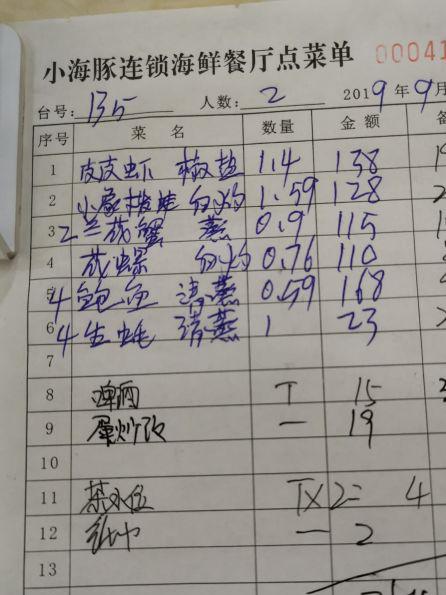 小海豚连锁海鲜餐厅点菜单 00041
台号: B5 人数: 2 2019年9月
序号 菜名 数量 金额 备
1 皮皮虾 椒盐 1.4 138
2 小象拔蚌 白灼 1.59 128
3 2兰花蟹 蒸 0.9 115
4 花螺 白灼 0.76 110
5 4鲍鱼 清蒸 0.59 168
6 4生蚝 清蒸 1 23
7
8 啤酒 T 15
9 蛋炒饭 一 19
10
11 茶水位 TX2= 4
12 纸巾 一 2
13